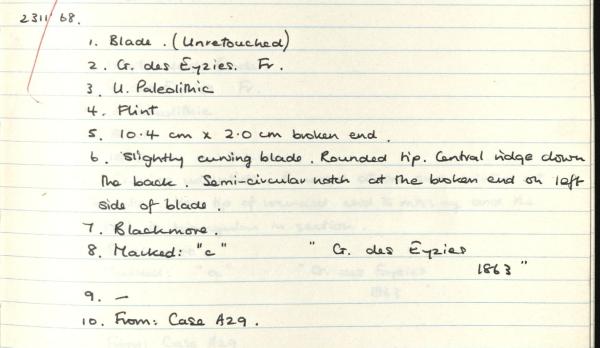 2311/68.
1. Blade. (Unretouched)
2. G. des Eyzies. Fr.
3. U. Paleolithic
4. Flint
5. 10.4 cm x 2.0 cm broken end.
6. Slightly curving blade. Rounded tip. Central ridge down
the back. Semi-circular notch at the broken end on left
side of blade.
7. Blackmore.
8. Marked: "c" " G. des Eyzies
1863 "
9. —
10. From: Case A29.